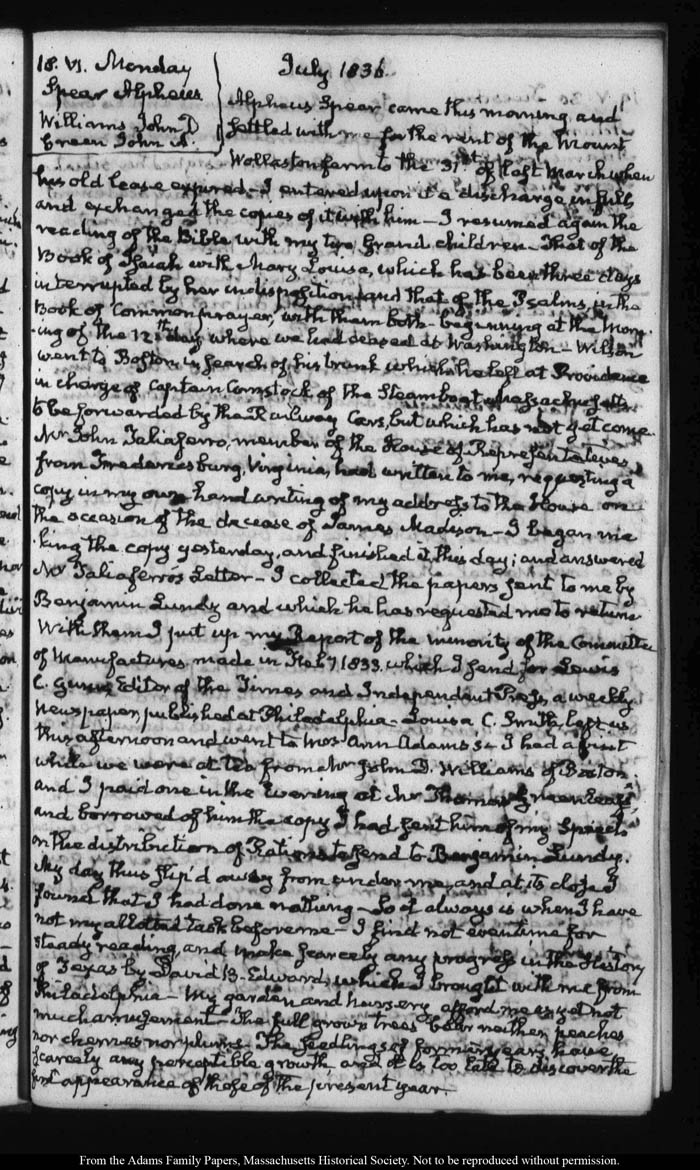 18. VI. Monday
Spear Alpheus
Williams John D
Green John A.
July 1836.
Alpheus Spear came this morning and
settled with me for the rent of the Mount
Wollaston farm to the 31st of last March when
his old lease expired. I entered upon it a discharge in full
and exchanged the copies of it with him — I resumed again the
reading of the Bible with my two Grand children — That of the
Book of Isaiah with Mary Louisa, which has been three days
interrupted by her indisposition and that of the Psalms, in the
Book of Common prayer, with them both — beginning at the Morn-
-ing of the 12th day where we had ceased at Washington — Wilson
went to Boston in search of his trunk which he left at Providence
in charge of Captain Comstock of the Steamboat Massachusetts
to be forwarded by the Railway Cars, but which has not yet come.
Mr John Taliaferro, member of the House of Representatives,
from Fredericksburg, Virginia, had written to me, requesting a
copy in my own hand writing of my address to the House on
the occasion of the decease of James Madison — I began ma
-king the copy yesterday, and finished it this day; and answered
Mr Taliaferro's Letter — I collected the papers sent to me by
Benjamin Lundy and which he has requested me to return
With them I put up my Report of the minority of the Committee
of Manufactures, made in Feby 1833. which I send for Lewis
C. Gunn, Editor of the Times and Independent Press, a weekly
Newspaper, published at Philadelphia — Louisa C. Smith left us
this afternoon and went to Mrs Ann Adams's — I had a visit
while we were at tea from Mr John D. Williams of Boston
and I paid one in the Evening at Mr Thomas Greenleaf's
and borrowed of him the copy I had sent him of my Speech
on the distribution of Rations to send to Benjamin Lundy.
My day thus slip'd away from under me, and at its close I
found that I had done nothing — So it always is when I have
not my allotted task before me — I find not even time for
steady reading, and make scarcely any progress in the History
of Texas by David B. Edward, which I brought with me from
Philadelphia — My garden and nursery afford me as yet not
much amusement — The full grown trees bear neither peaches
nor cherries nor plums — The seedlings of former years have
scarcely any perceptible growth and it is too late to discover the
first appearance of those of the present year.
From the Adams Family Papers, Massachusetts Historical Society. Not to be reproduced without permission.